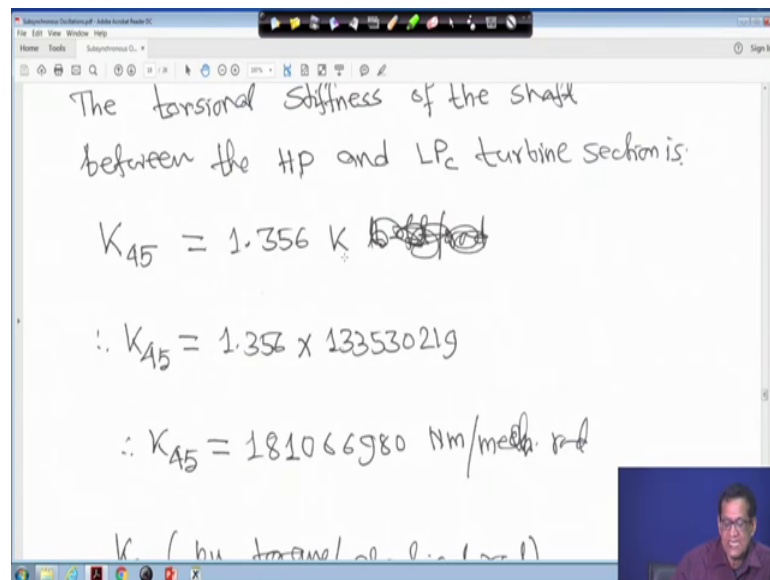 Subsynchronous Oscillations.pdf - Adobe Acrobat Reader DC
File Edit View Window Help
Home Tools Subsynchronous O... ×
Sign In
The torsional stiffness of the shaft
between the HP and LPc turbine section is.
K45 = 1.356 K
∴ K45 = 1.356 × 133530219
∴ K45 = 181066980 Nm/mech. rad